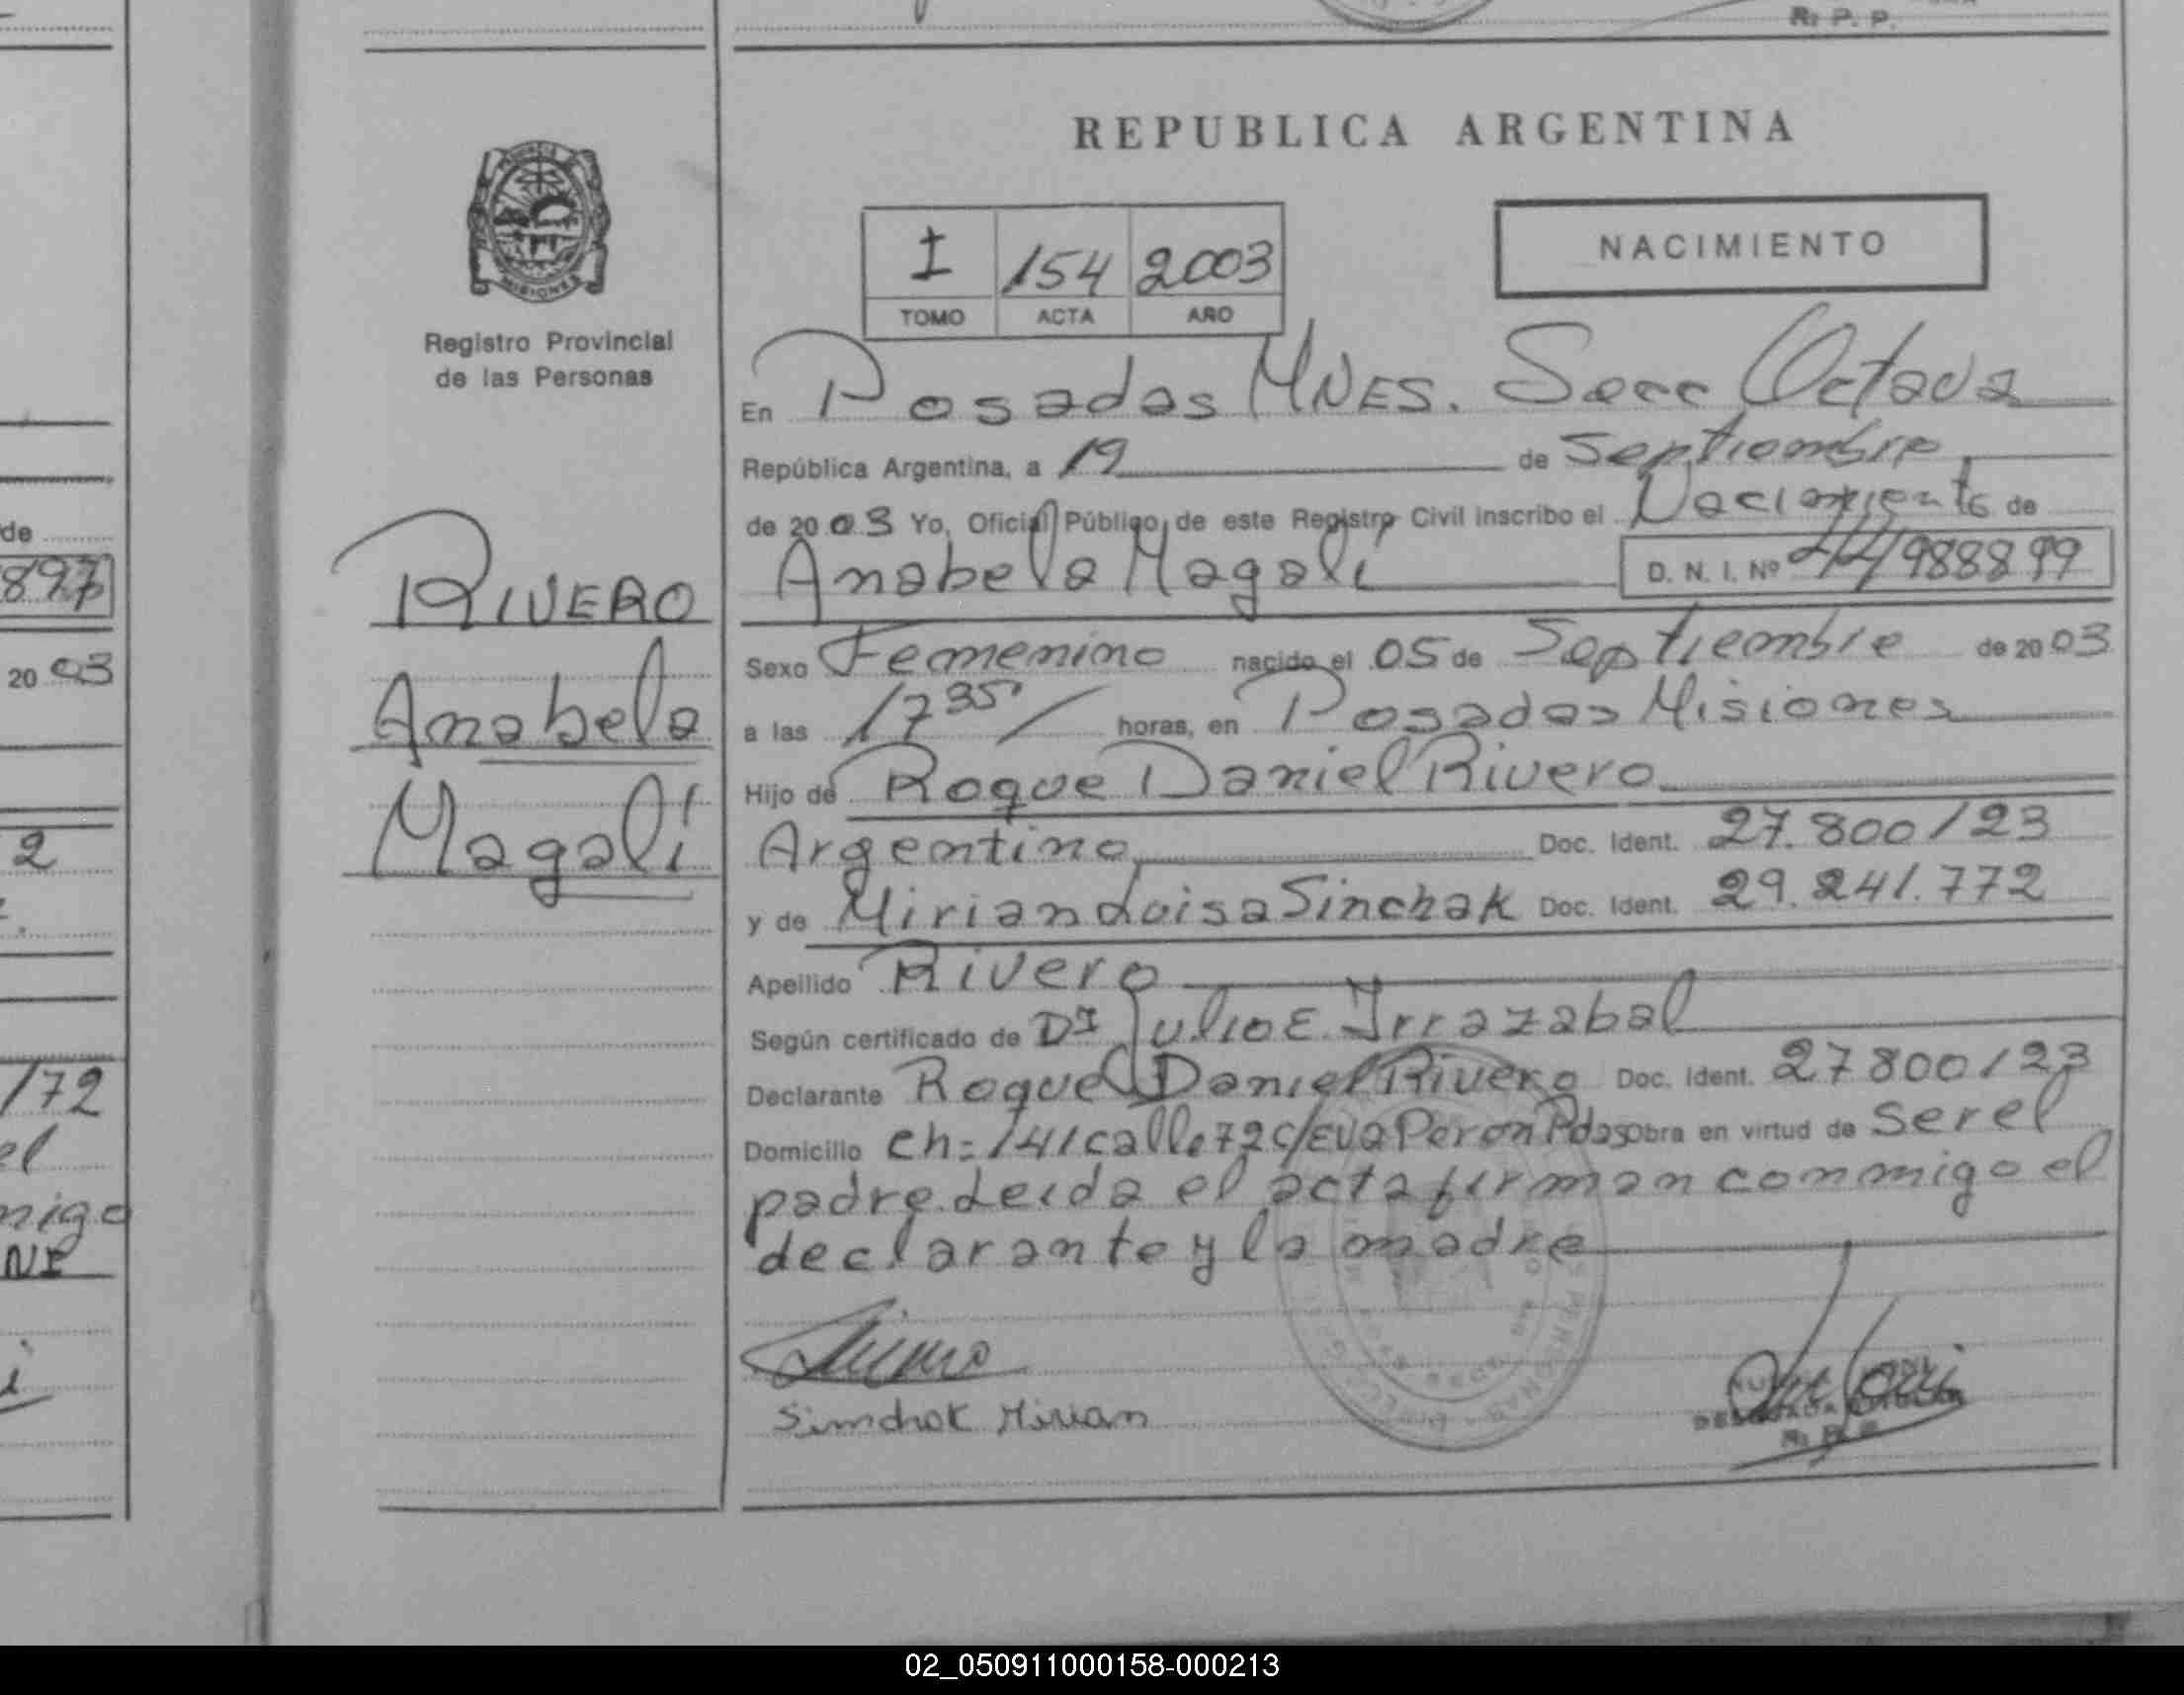 R. P. P.
REPUBLICA ARGENTINA
MISIONES
Registro Provincial
de las Personas
I 154 2003
TOMO ACTA AÑO
NACIMIENTO
En Posadas MNES. Secc Octava
República Argentina, a 19 de Septiembre
de 2003 Yo, Oficial Público, de este Registro Civil inscribo el Nacimiento de
Anabela Magali D. N. I. Nº 44988899
RIVERO
Anabela
Magalí
Sexo Femenino nacido el 05 de Septiembre de 2003
a las 17 35 horas, en Posadas Misiones
Hijo de Roque Daniel Rivero
Argentino Doc. Ident. 27.800123
y de Mirian Luisa Sinchak Doc. Ident. 29.241.772
Apellido Rivero
Según certificado de Dr Julio E. Irrazabal
Declarante Roque Daniel Rivero Doc. Ident. 27800123
Domicilio ch: 141 calle 72 c/Eva Peron Pdas obra en virtud de ser el
padre. Leida el acta firman conmigo el
declarante y la madre
Simchak Mirian
R. P. P.
de
897
20 03
2
172
el
migo
NI
02_050911000158-000213